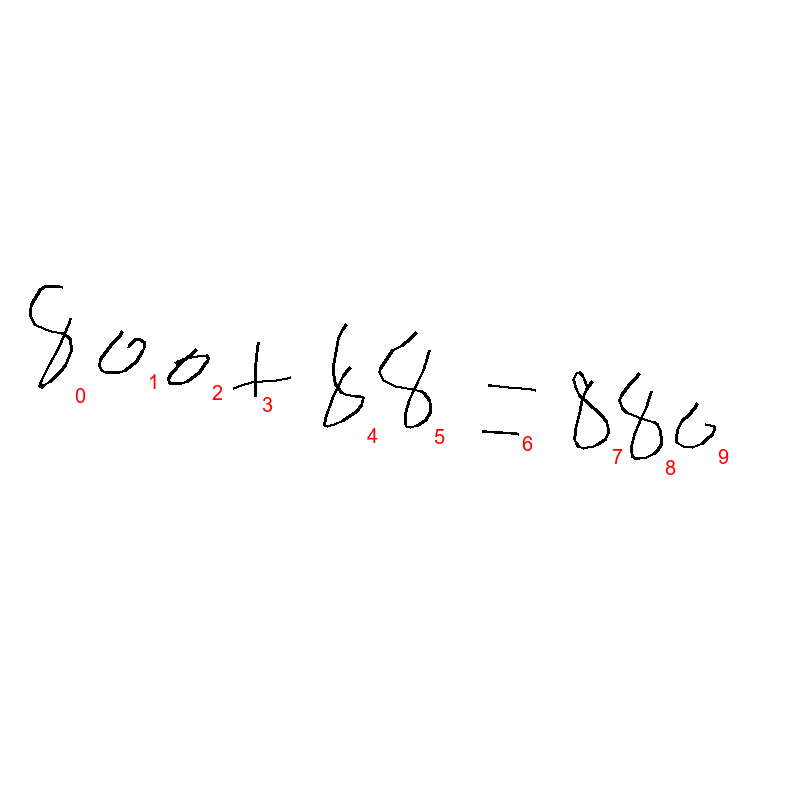 800+88=880
0 1 2 3 4 5 6 7 8 9